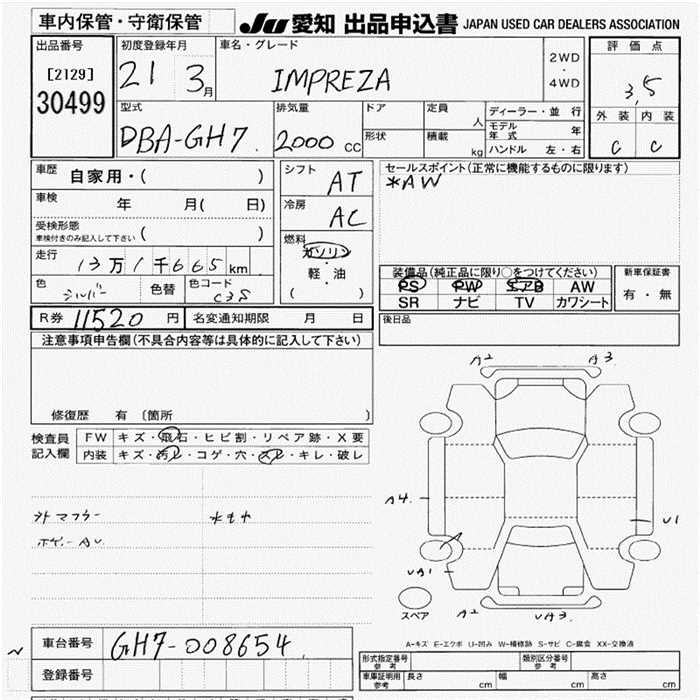 車内保管・守衛保管
JU 愛知 出品申込書 JAPAN USED CAR DEALERS ASSOCIATION
出品番号
[2129]
30499
初度登録年月
21 3月
車名・グレード
IMPREZA
2WD
・
4WD
評価点
3,5
外装 内装
C C
型式
DBA-GH7.
排気量
2000 CC
ドア
定員
人
形状
積載
kg
ディーラー・並行
モデル年式 年
ハンドル 左・右
車歴 自家用・( )
車検 年 月( 日)
受検形態
車検付きのみ記入して下さい ( )
走行 13万1千665km
色 シルバー 色替 色コード C3S
シフト AT
冷房 AC
燃料
ガソリン
軽・油
( )
セールスポイント(正常に機能するものに限ります)
*AW
装備品(純正品に限り○をつけてください)
PS PW SAB AW
SR ナビ TV カワシート
新車保証書
有・無
R券 11520円 名変通知期限 月 日
後日品
注意事項申告欄(不具合内容等は具体的に記入して下さい)
修復歴 有 [箇所 ]
検査員記入欄
FW キズ・飛石・ヒビ割・リペア跡・X要
内装 キズ・汚レ・コゲ・穴・スレ・キレ・破レ
外マフラー
A2 A3
A4
U1
A
UA1
A2 UA3
スペア
A-キズ E-エクボ U-凹み W-補修跡 S-サビ C-腐食 XX-交換済
車台番号 GH7-008654
登録番号
形式指定番号
参考
類別区分番号
参考
車庫証明用
参考
長さ cm 幅 cm 高さ cm